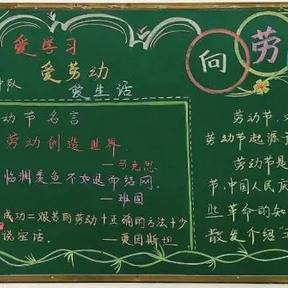 爱学习
爱劳动
爱生活
中队
向劳
动节名言
劳动创造世界
——马克思
临渊羡鱼不如退而结网。
——班固
成功=艰苦的劳动+正确的方法+少
说空话。——爱因斯坦
劳动节,又
劳动节起源于
劳动节是
节,中国人民庆
些革命的知
散发介绍"五